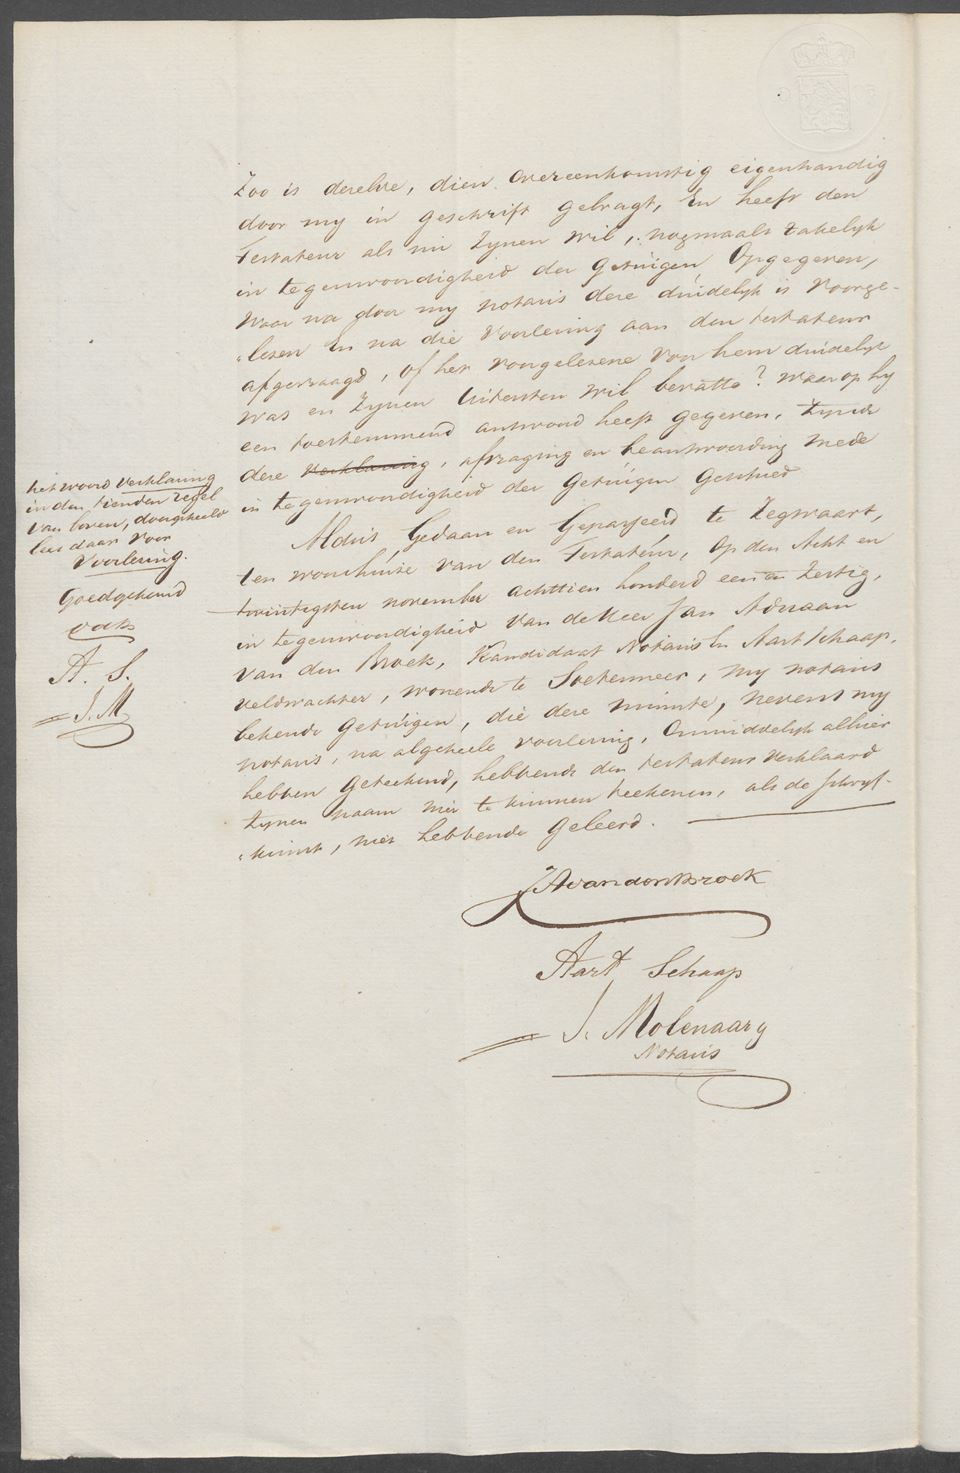 Zoo is dezelve, dien overeenkomstig eigenhandig
door my in geschrift gebragt, En heeft den
Testateur als nu Zynen wil, nogmaals zakelyk
in tegenwoordigheid der Getuigen Opgegeven,
waar na door my notaris deze duidelyk is Voorge-
"lezen En na die Voorlezing aan den testateur
afgevraagd, of het voorgelezene voor hem duidelyk
was en Zynen Uitersten wil bevatte? waar op hy
een toestemmend antwoord heeft gegeven, Zynde
deze Verklaring, afvraging en beantwoording mede
in tegenwoordigheid der Getuigen Geschied
het woord Verklaring
in den tienden regel
van boven, doorgehaald
lees daar voor
Voorlezing.
Goedgekeurd
vdB
A. S.
J. M
Aldus Gedaan en Gepasseerd te Zegwaart,
ten woonhuize van den Testateur, Op den Acht en
twintigsten november achttien honderd een en Zestig,
in tegenwoordigheid van de Heer Jan Adriaan
van den Broek, Kandidaat Notaris En Aart Schaap,
veldwachter, wonende te Soetermeer, my notaris
bekende Getuigen, die deze minute, nevens my
notaris, na algeheele voorlezing, Onmiddelyk alhier
hebben Geteekend, hebbende den testateur Verklaard
Zynen naam niet te kunnen teekenen, als de schryf-
"kunst, niet hebbende Geleerd.
JAvandenBroek
Aart Schaap
J. Molenaar
Notaris